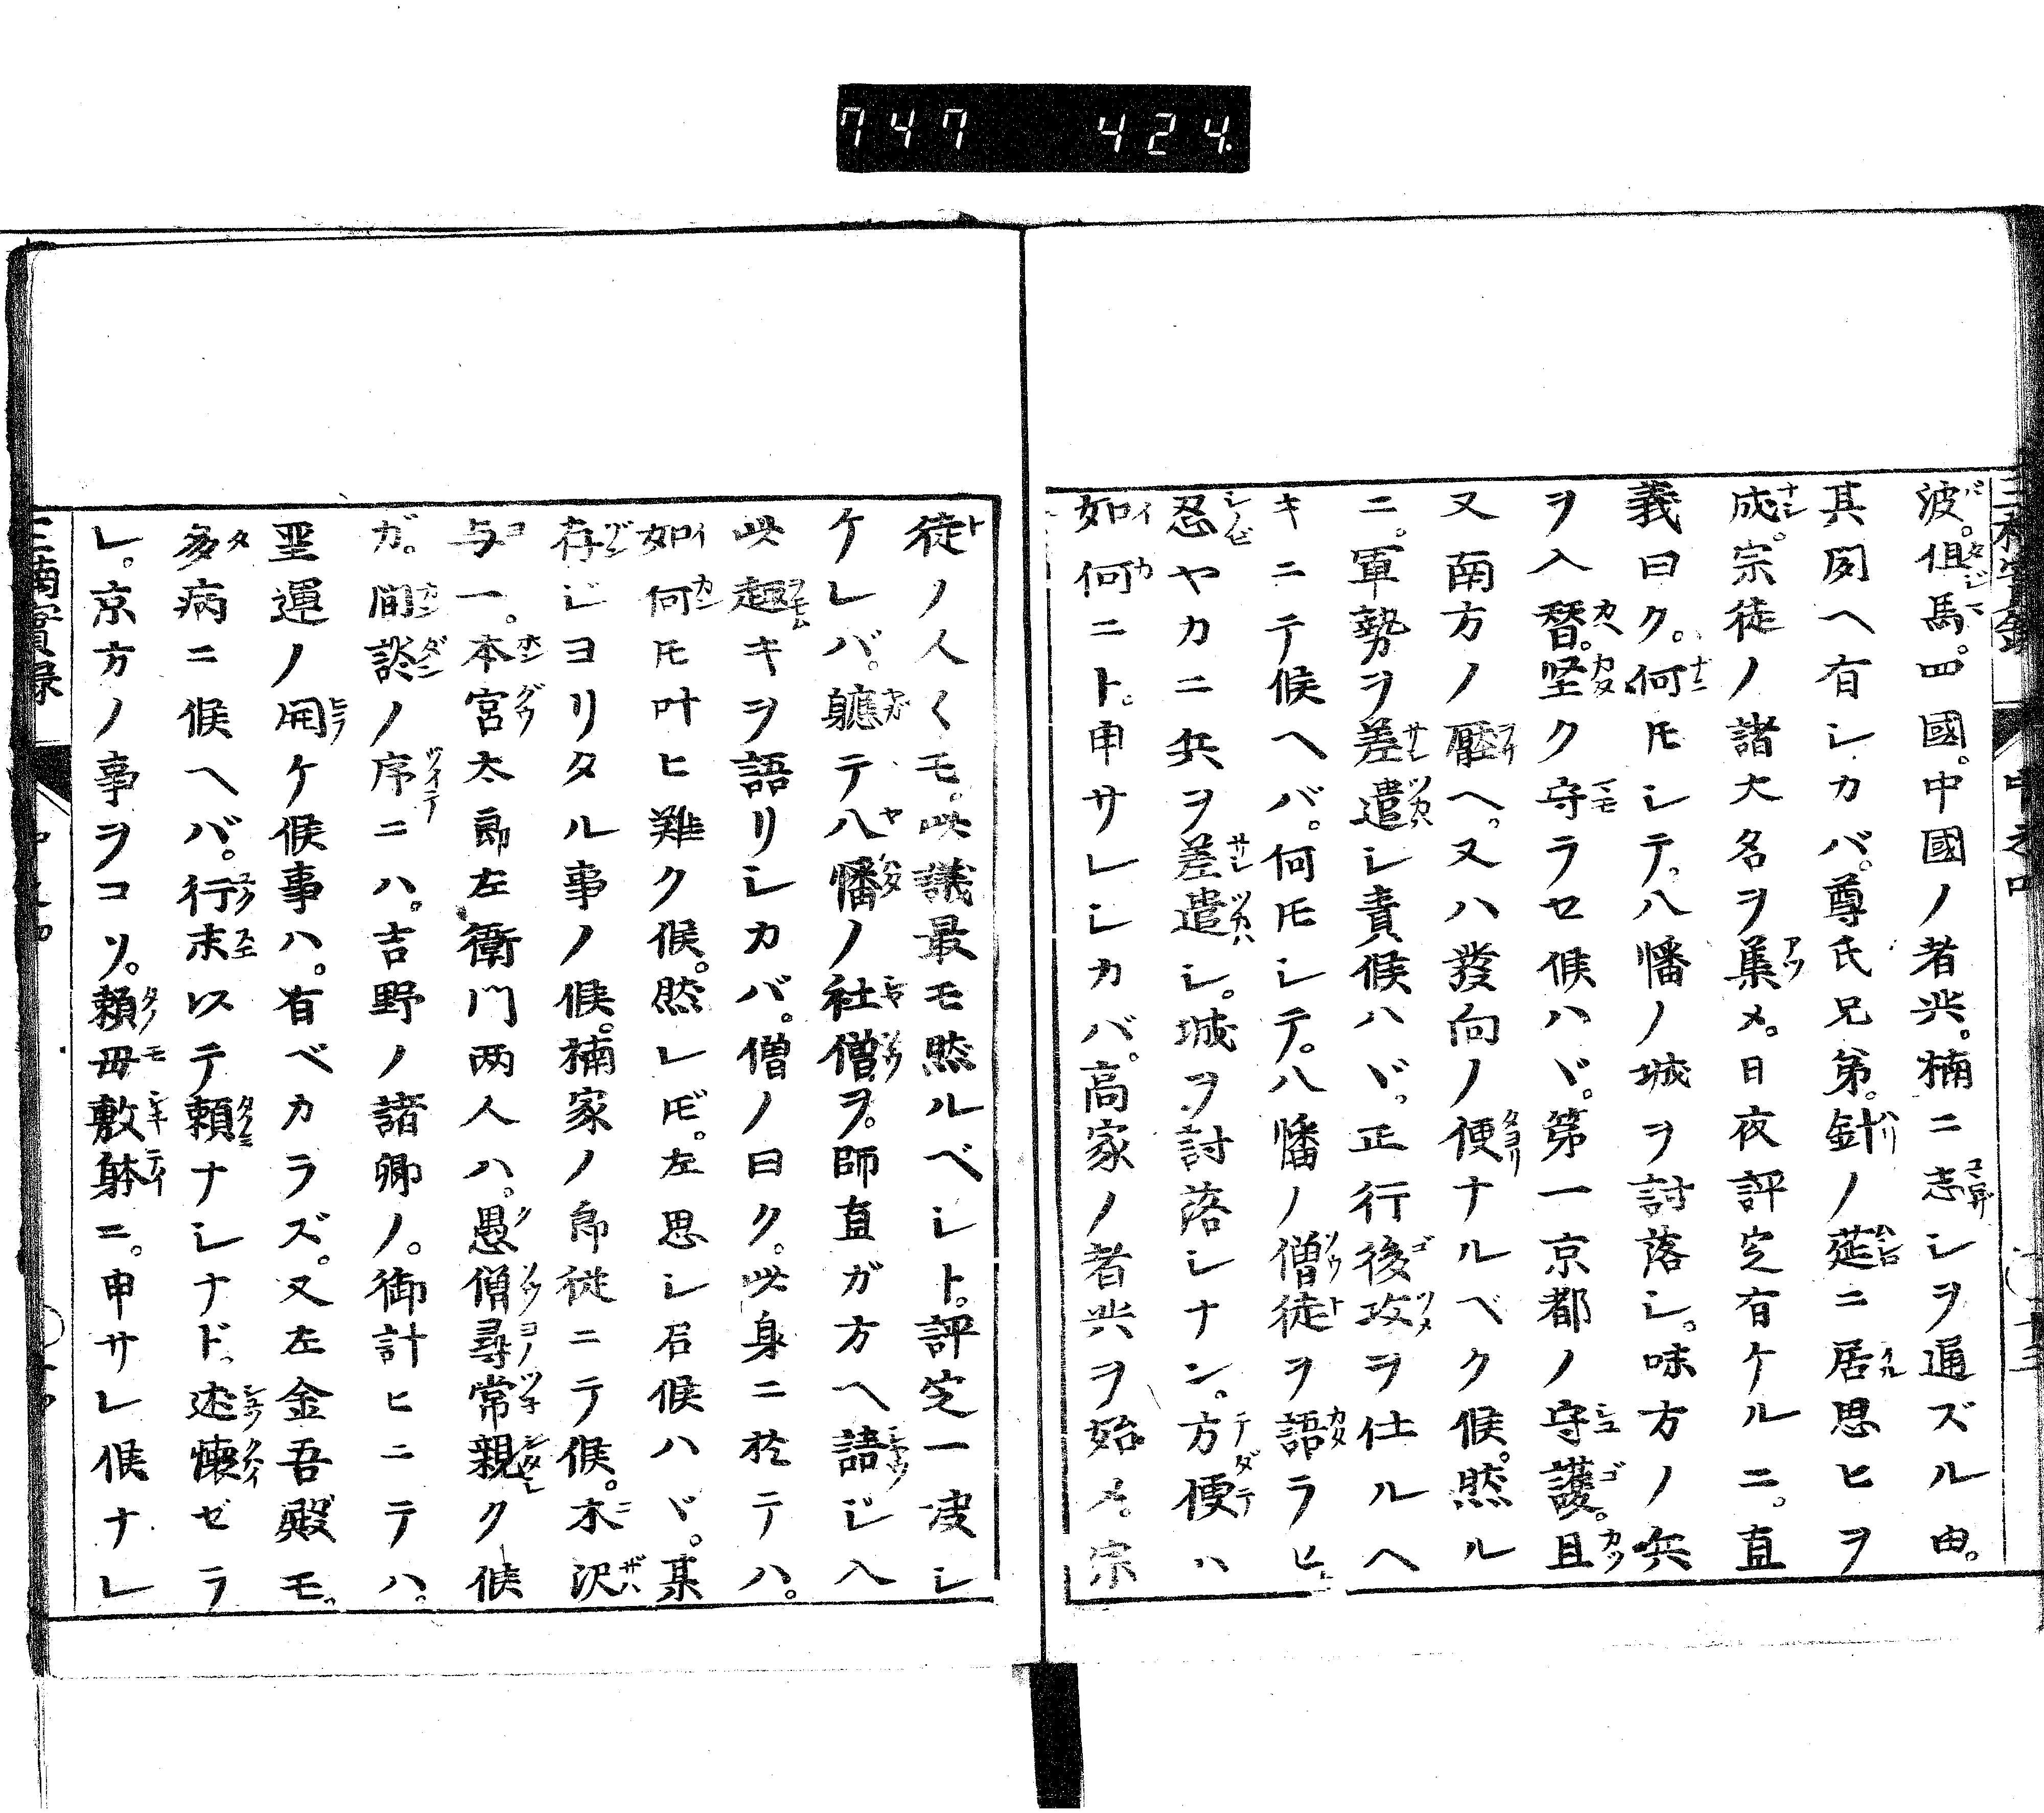 747 424
波。但馬。四國。中國ノ者共。楠ニ志シヲ通ズル由。
其聞ヘ有シカバ。尊氏兄第。針ノ莚ニ居思ヒヲ
成。宗徒ノ諸大名ヲ集メ。日夜評定有ケルニ。直
義曰ク。何モシテ。八幡ノ城ヲ討落シ。味方ノ兵
ヲ入替。堅ク守ラセ候ハヾ。第一京都ノ守護。且
又南方ノ壓ヘ。又ハ發向ノ便ナルベク候。然ル
ニ。軍勢ヲ差遣シ責候ハヾ。正行後攻ヲ仕ルヘ
キニテ候ヘバ。何トモシテ。八幡ノ僧徒ヲ語ラヒ
忍ヤカニ兵ヲ差遣シ。城ヲ討落シナン。方便ハ
如何ニト。申サレシカバ。高家ノ者共ヲ始メ。宗
徒ノ人々モ。此議最モ然ルベシト。評定一決シ
ケレバ。軈テ八幡ノ社僧ヲ。師直ガ方ヘ請ジ入
此趣キヲ語リシカバ。僧ノ曰ク。此身ニ於テハ。
如何トモ叶ヒ難ク候。然レドモ。左思シ召候ハヾ。某
存ジヨリタル事ノ候。楠家ノ郎従ニテ候。木沢
与一。本宮太郎左衛門両人ハ。愚僧尋常親ク候
ガ。間談ノ序ニハ。吉野ノ諸卿ノ。御計ヒニテハ。
聖運ノ開ケ候事ハ。有ベカラズ。又左金吾殿モ。
多病ニ候ヘバ。行末以テ頼ナシナド。述懐ゼラ
レ。京方ノ事ヲコソ。頼母敷躰ニ。申サレ候ナレ
三楠實録